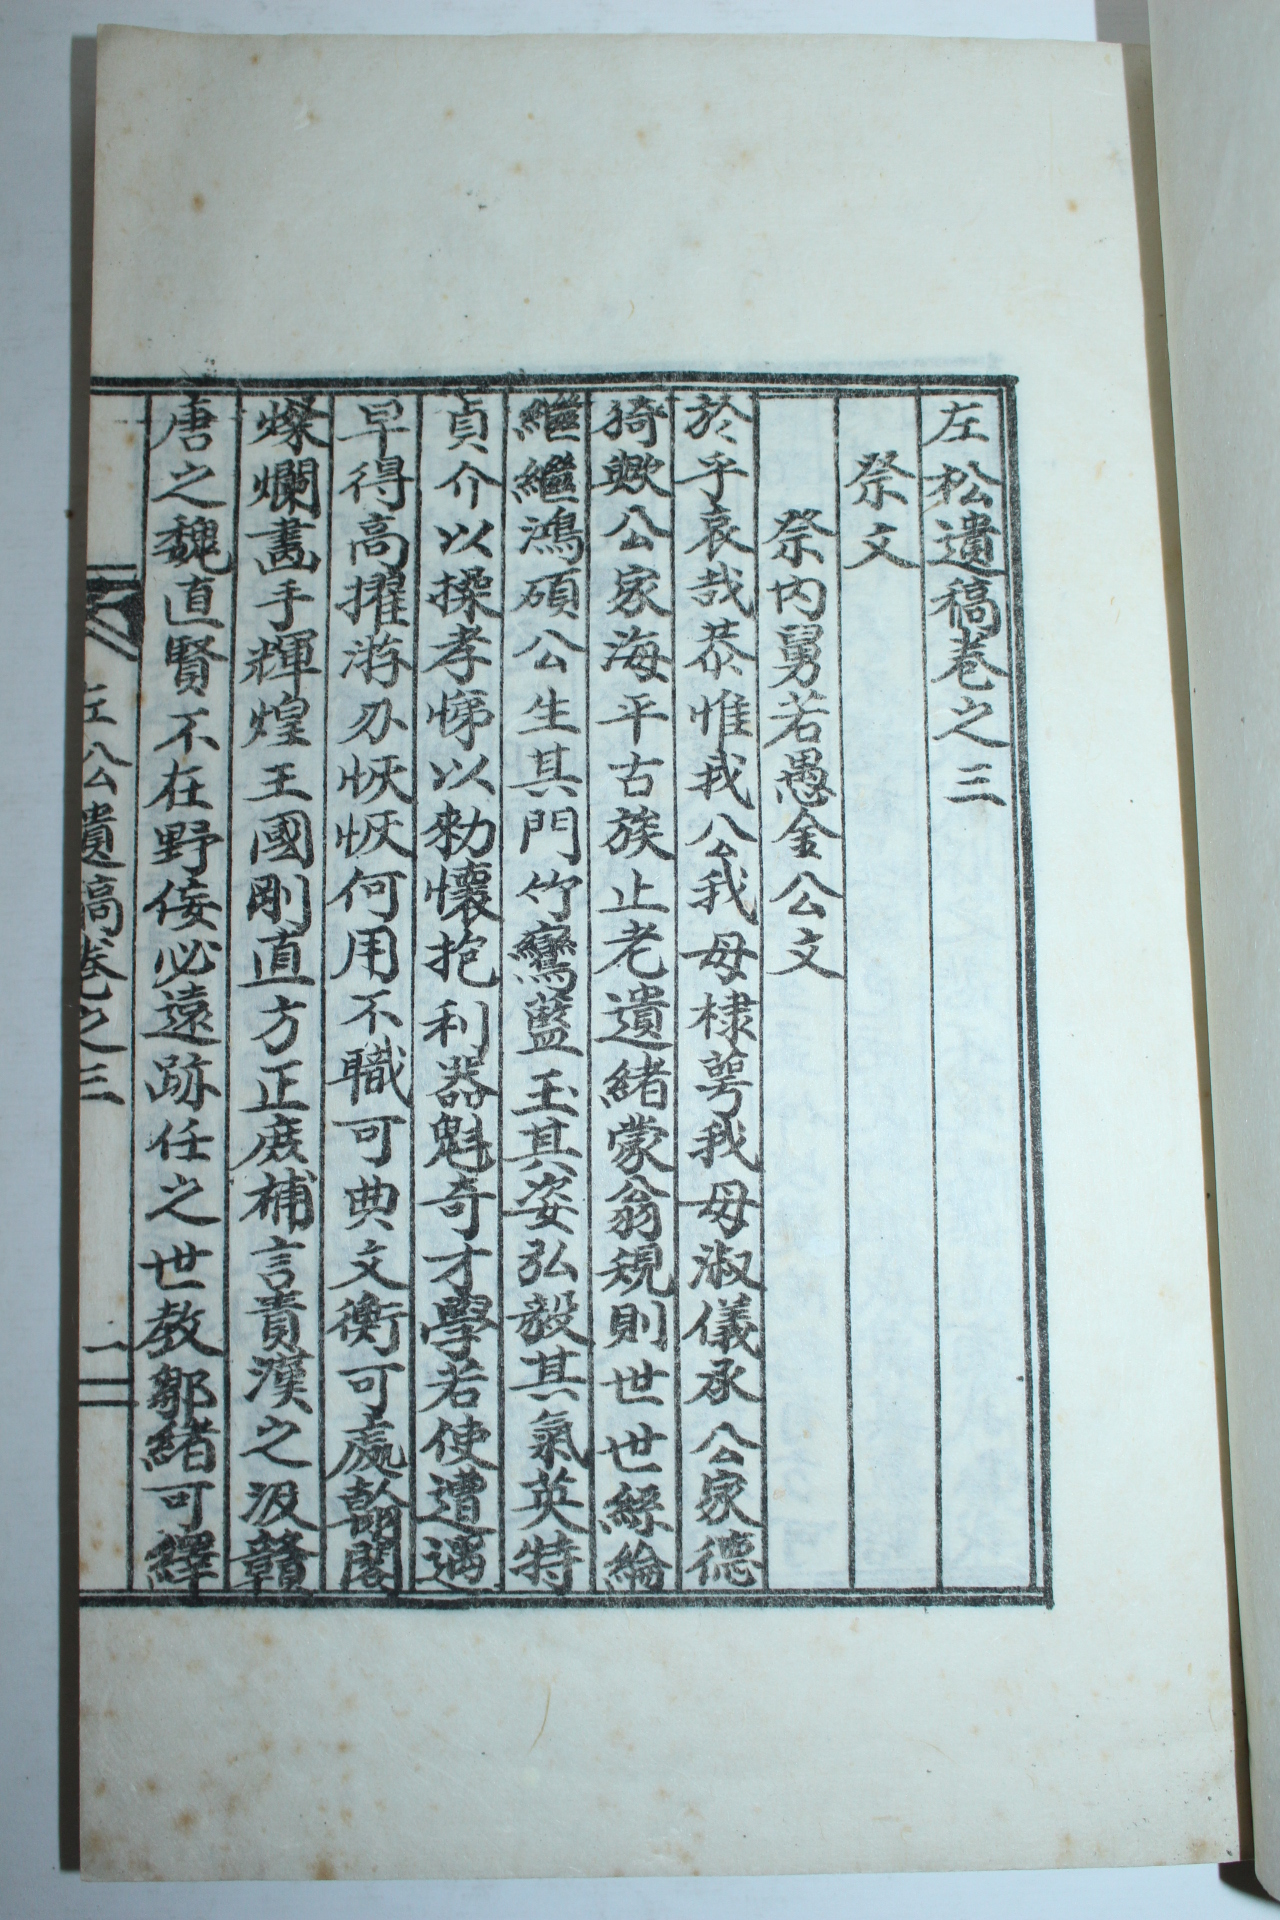 左松遺稿卷之三
祭文
祭内舅若愚金公文
於乎哀哉恭惟我公我母棣萼我母淑儀承公家德
猗歟公家海平古族止老遺緒蒙翁規則世世綵綸
繼繼鴻碩公生其門竹鸞藍玉其姿弘毅其氣英特
貞介以操孝悌以勑懷抱利器魁奇才學若使遭遇
早得高擢游刃恢恢何用不職可典文衡可處翰閣
燦爛畵手輝煌王國剛直方正庶補言責漢之汲贛
唐之魏直賢不在野侫必遠跡任之世教鄒緖可繹
左公遺稿卷之三
一